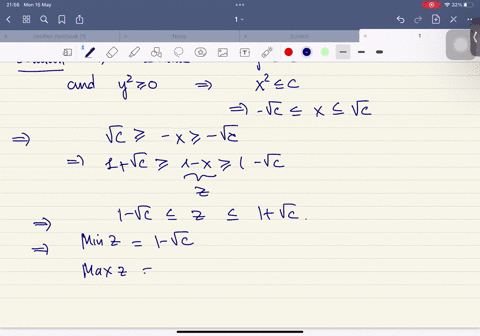 21:56 Mon 15 May
32%
1
and y² ≥ 0 ⇒ x² ≤ c
⇒ -√c ≤ x ≤ √c
⇒ √c ≥ -x ≥ -√c
⇒ 1+√c ≥ 1-x ≥ 1-√c
z
⇒ 1-√c ≤ z ≤ 1+√c.
⇒ Min z = 1-√c
Max z =